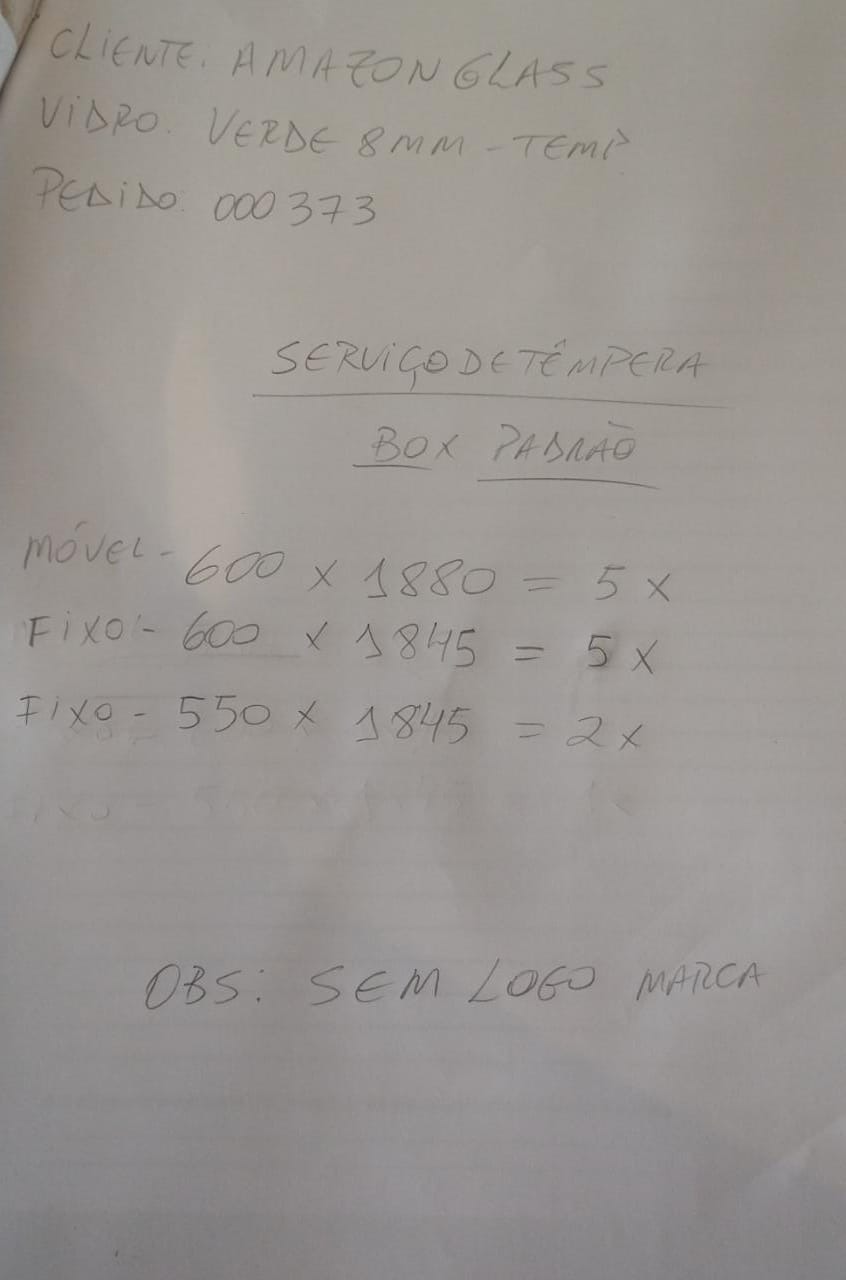 CLIENTE. AMAZON GLASS
VIDRO. VERDE 8MM - TEMP
PEDIDO: 000373
SERVIÇO DE TÊMPERA
BOX PADRÃO
MÓVEL - 600 x 1880 = 5x
FIXO - 600 x 1845 = 5x
FIXO - 550 x 1845 = 2x
OBS: SEM LOGO MARCA